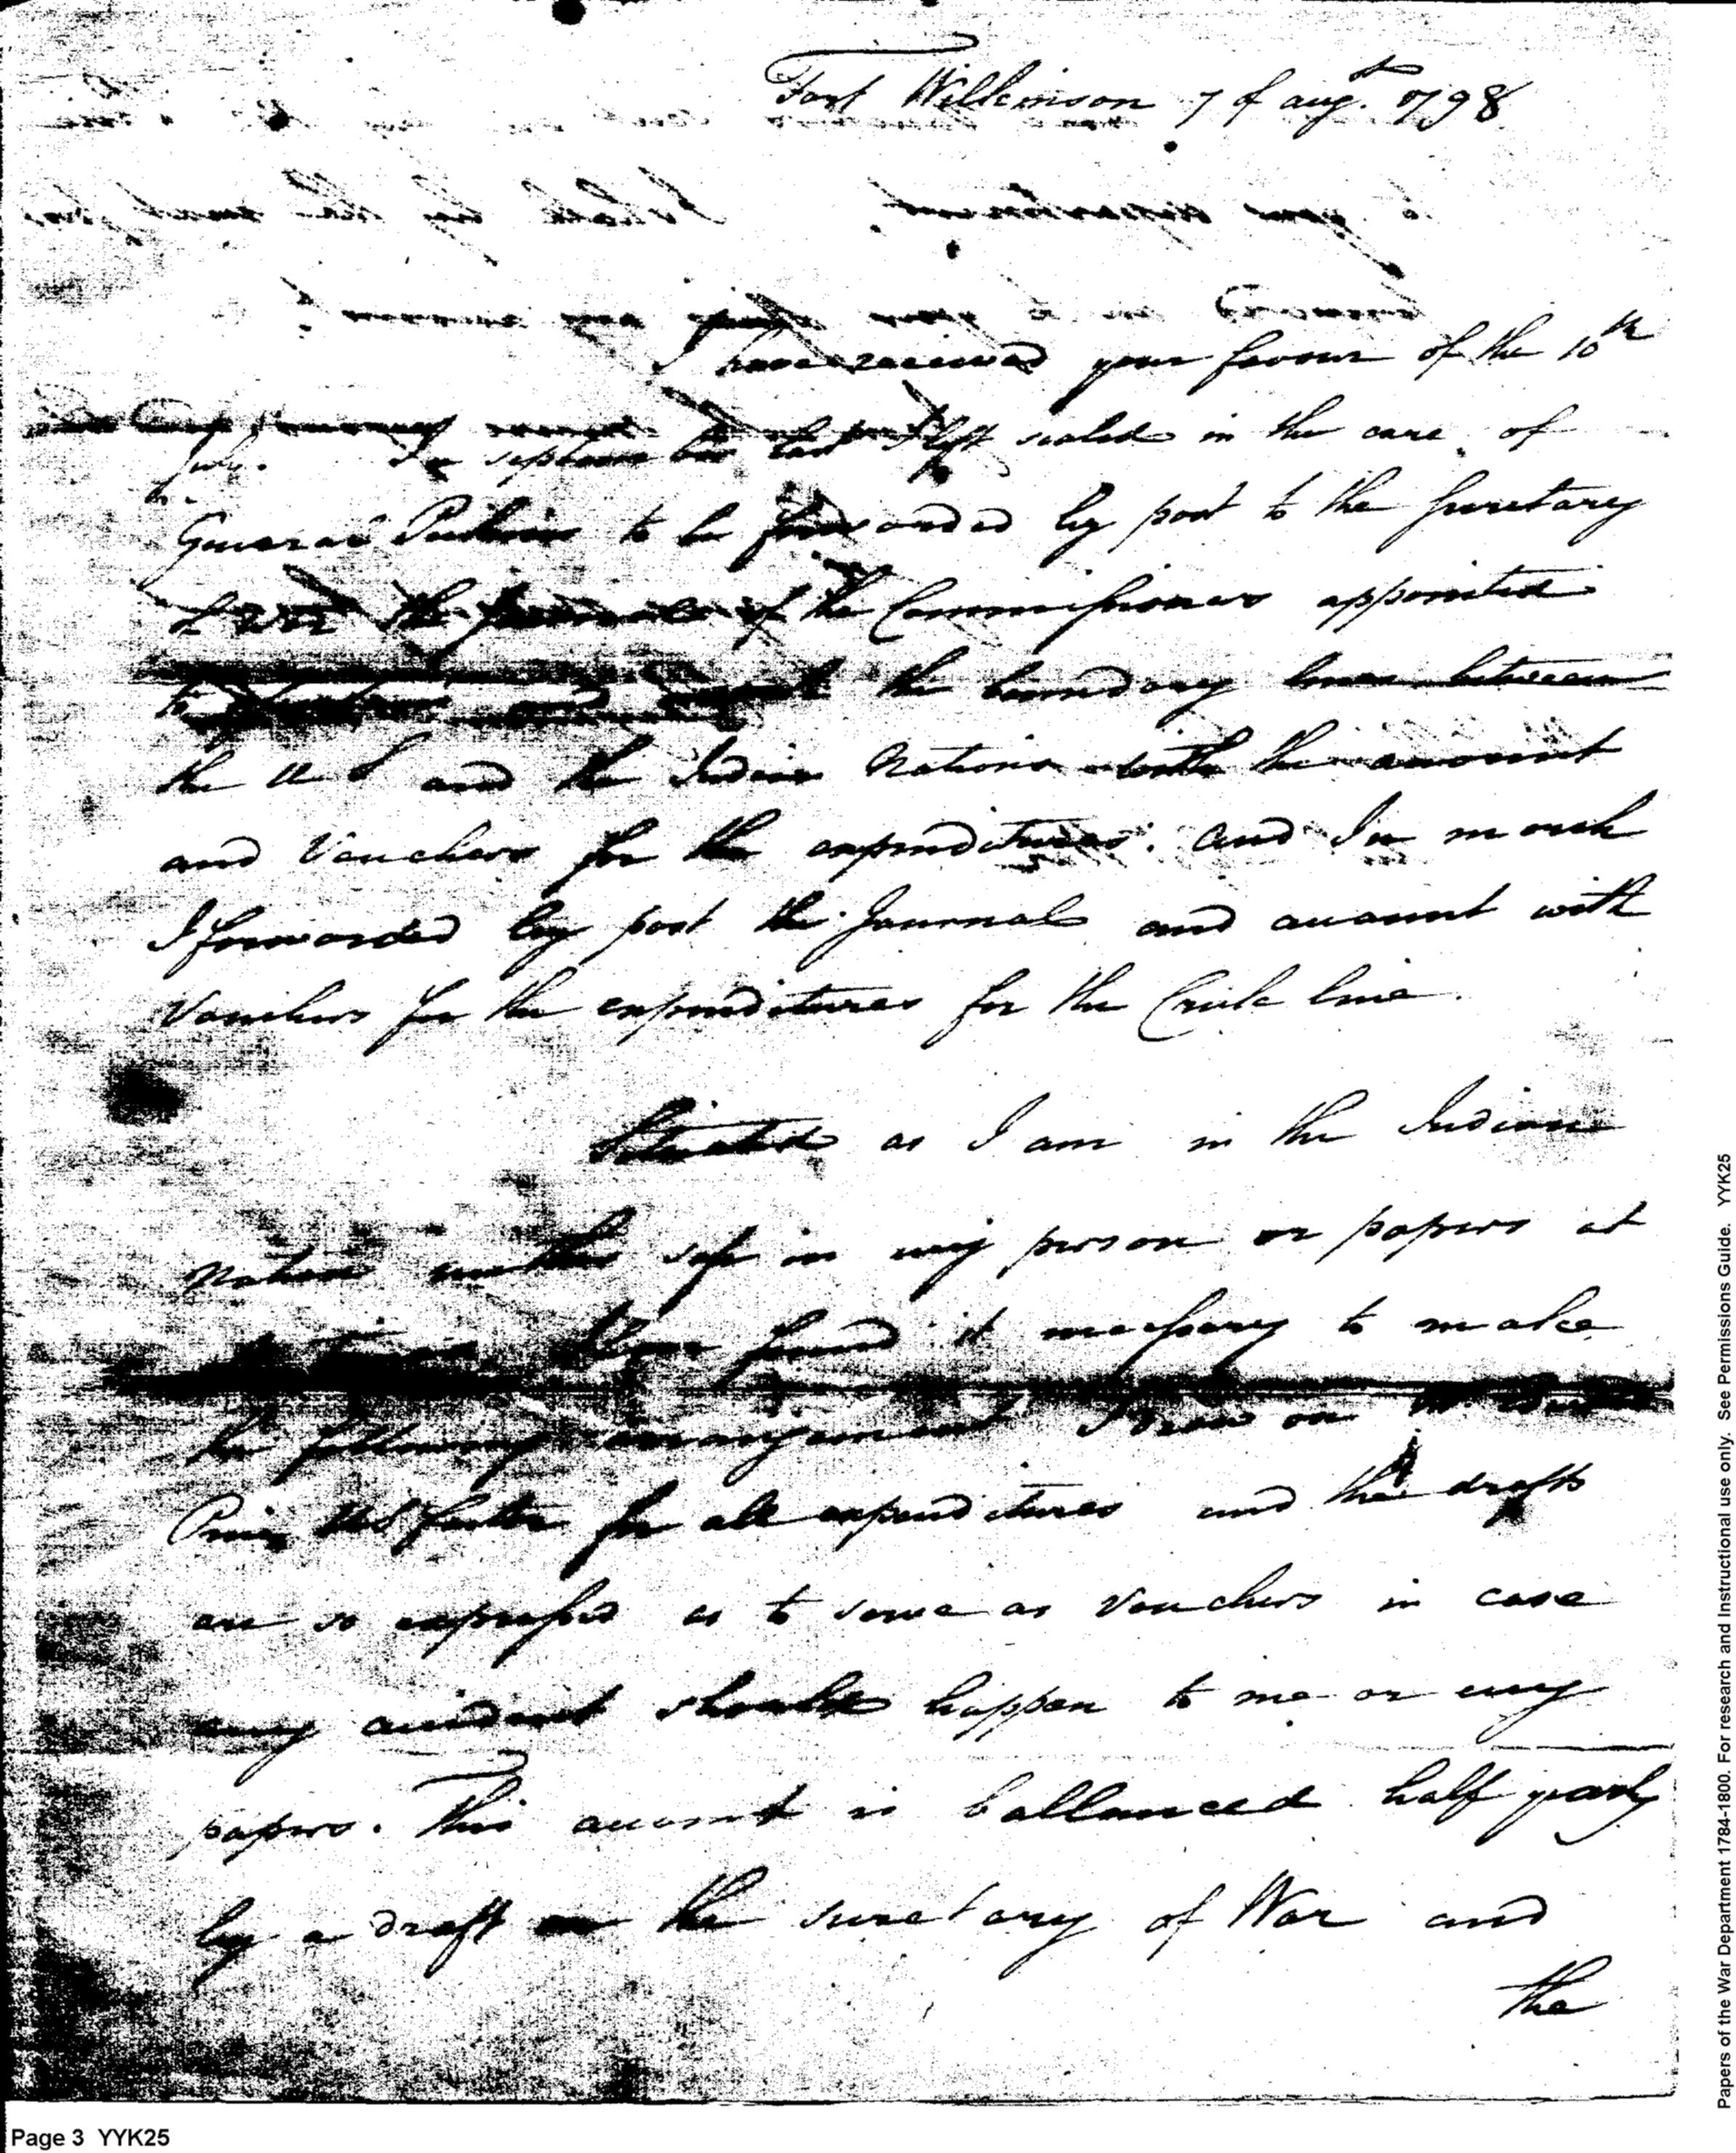 Fort Wilkinson 7 of augst. 1798
I have received your favour of the 10th
July. In september last I left sealed in the care of
General Pickens to be forwarded by post to the secretary
of War the journals of the Commissioners appointed
to and the boundary lines between
the U S and the Indian Nations with the amount
and Vouchers for the expenditures. and In march
I forwarded by post the Journal and account with
Vouchers for the expenditures for the Creek line.
Situated as I am in the Indian
Nation neither safe in my person or papers at
have found it necessary to make
the following arrangement I draw on
Price US factor for all expenditures and the drafts
are so expressed as to serve as Vouchers in case
any accident should happen to me or my
papers. This account is ballanced half yearly
by a draft on the secretary of War and
the
Page 3 YYK25
Papers of the War Department 1784-1800. For research and Instructional use only. See Permissions Guide. YYK25